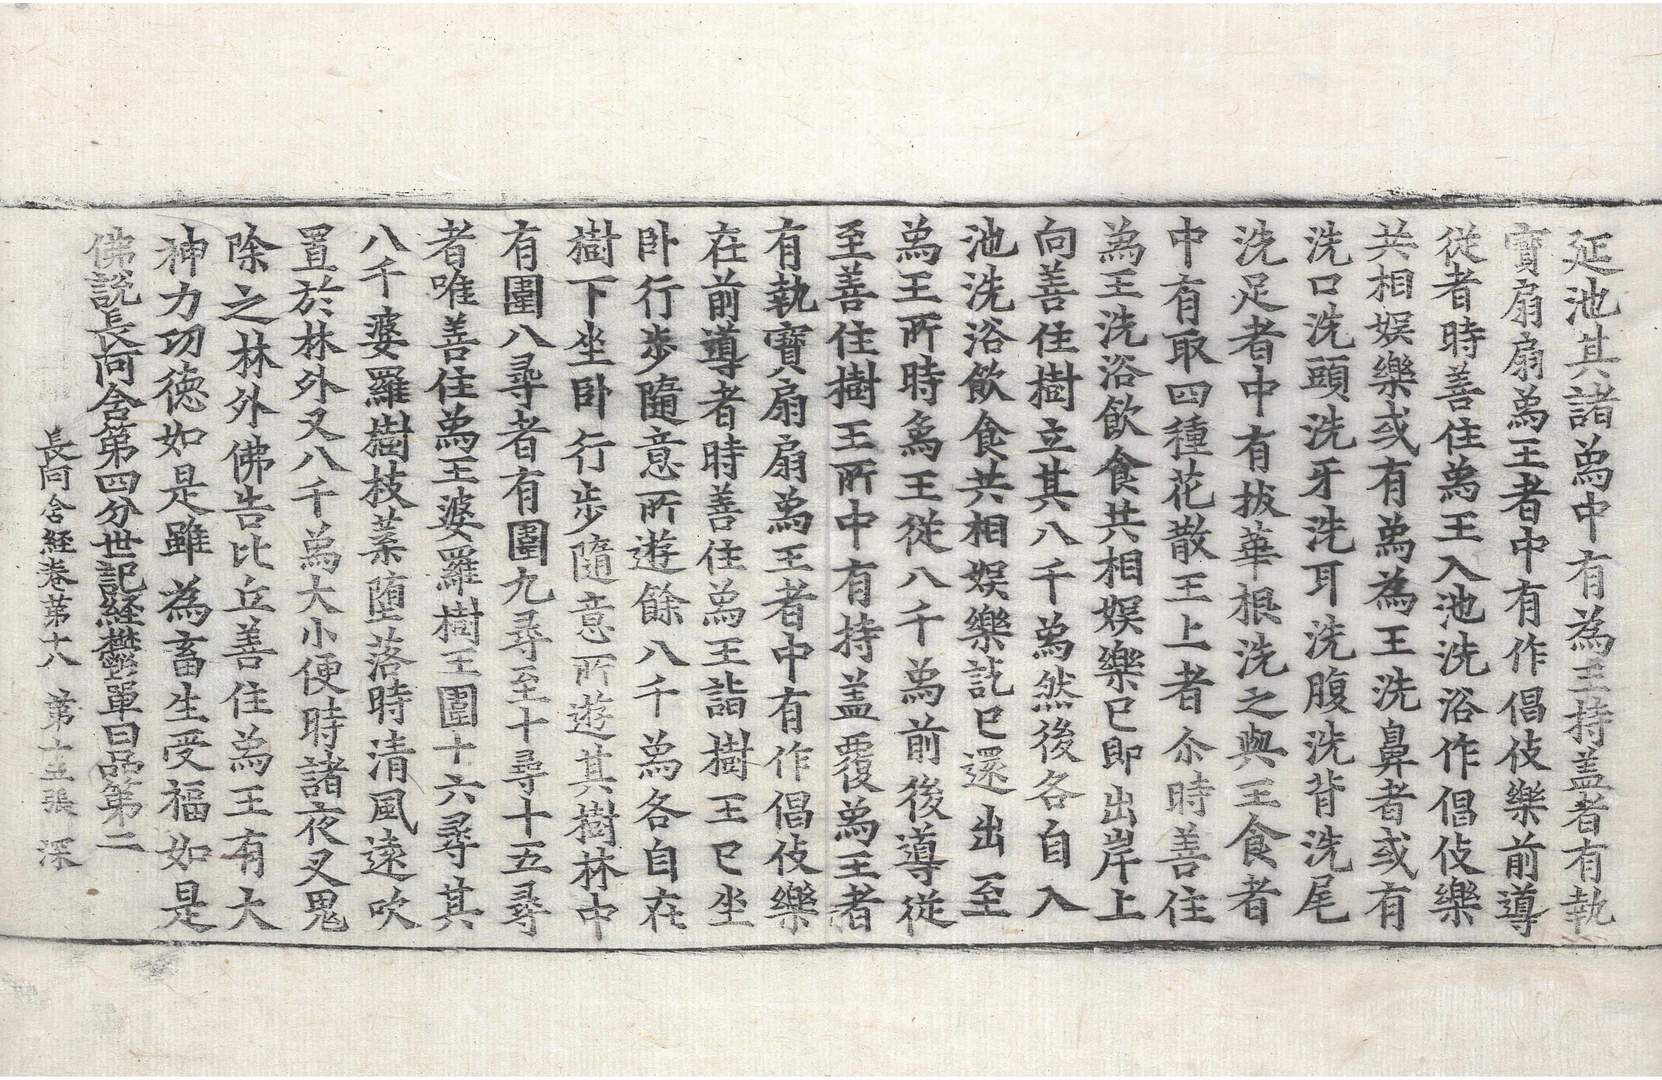 延池其諸象中有為王持盖者有執
寶扇扇象王者中有作倡伎樂前導
從者時善住象王入池洗浴作倡伎樂
共相娛樂或有象為王洗鼻者或有
洗口洗頭洗牙洗耳洗腹洗背洗尾
洗足者中有拔華根洗之與王食者
中有取四種花散王上者尒時善住
象王洗浴飲食共相娛樂已即出岸上
向善住樹立其八千象然後各自入
池洗浴飲食共相娛樂訖已還出至
象王所時象王從八千象前後導從
至善住樹王所中有持盖覆象王者
有執寶扇扇象王者中有作倡伎樂
在前導者時善住象王詣樹王已坐
卧行步隨意所遊餘八千象各自在
樹下坐卧行步隨意所遊其樹林中
有圍八尋者有圍九尋至十尋十五尋
者唯善住象王婆羅樹王圍十六尋其
八千婆羅樹枝葉墮落時清風遠吹
置於林外又八千象大小便時諸夜叉鬼
除之林外佛告比丘善住象王有大
神力功德如是雖為畜生受福如是
佛說長阿含第四分世記経欝單曰品第二
長阿含経卷第十八 第十五張 深